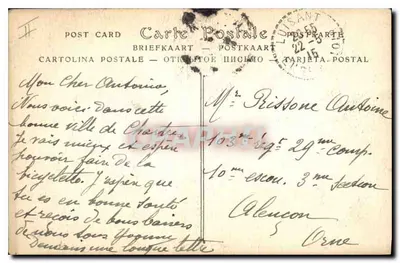 POST CARD Carte Postale POSTKARTE
BRIEFKAART — POSTKAART
CARTOLINA POSTALE — ОТКРЫТОЕ ПИСЬМО — TARJETA-POSTAL
LUISANT
22 -5
15
Mon Cher Antoine,
Nous voici dans cette
bonne ville de Chartres
Je vais mieux et espère
pouvoir faire de la
bicyclette. J'espère que
tu es en bonne santé
et reçois de bons baisers
de nous tous Yvonne
Demain une longue lettre
Mr Prissone Antoine
103me Rgt 29me comp.
10me escou. 3me section
Alençon
Orne